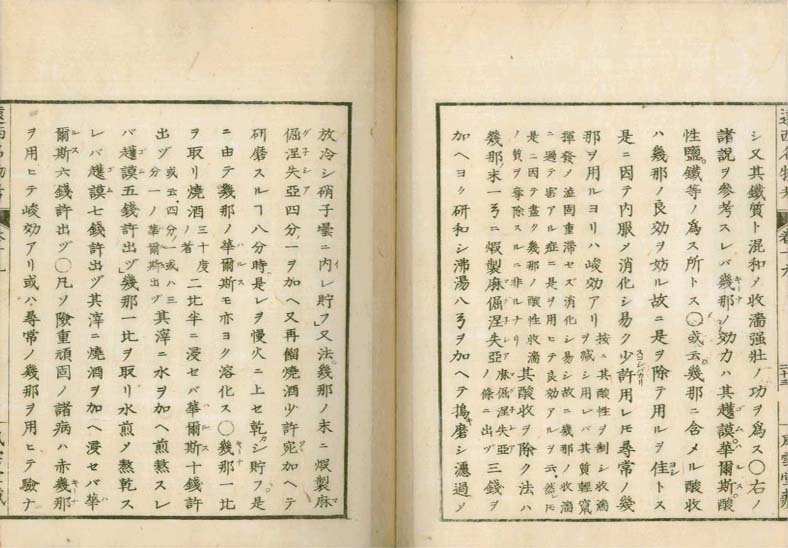 シ又其鐵質ト混和メ收濇强壯ノ功ヲ爲ス〇右ノ
諸説ヲ參考スレバ幾那ノ効力ハ其護謨華爾斯酸
性鹽鐵等ノ爲ス所トス〇或云幾那ニ含メル酸收
ハ幾那ノ良効ヲ妨ル故ニ是ヲ除テ用ルヲ佳トス
是ニ因テ内服メ消化シ易ク少許用レモ尋常ノ幾
那ヲ用ルヨリハ峻効アリ
按ニ其酸性ヲ制シ收濇
ヲ減シ用レバ其質輕竄
揮發ノ
固重滯セズ消化シ易シ故ニ幾那ノ收濇
ニ過テ害アル症ニ是ヲ用ヒテ良効アルヲ云然レ
是ニ因テ盡ク幾那ノ酸性收濇
ノ質ヲ奪除スルニ非ルナリ
其酸收ヲ除ク法ハ
幾那末一ヲニ煆製麻倔涅失亞
麻倔涅失亞
ノ條ニ出ヅ
三錢ヲ
加ヘヨク研和シ沸湯八ヲヲ加ヘテ搗磨シ濾過メ
放冷シ硝子壜ニ内レ貯フ又法幾那ノ末ニ煆製麻
倔涅失亞四分一ヲ加ヘ又再餾燒酒少許宛加ヘテ
研磨スルヿ八分時是レヲ慢火ニ上セ乾シ貯フ是
ニ由テ幾那ノ華爾斯モ亦ヨク溶化ス〇幾那一比
ヲ取リ燒酒
三十度
ノ者
二比半ニ浸セバ華爾斯十錢許
出ヅ
或云四分ノ一或ハ三
分一ノ華爾斯出ヅ
其滓ニ水ヲ加ヘ煎熬スレ
バ護謨五錢許出ヅ幾那一比ヲ取リ水煎メ熬乾ス
レバ護謨七錢許出ヅ其滓ニ燒酒ヲ加ヘ浸セバ華
爾斯六錢許出ヅ〇凡ソ險重頑固ノ諸病ハ赤幾那
ヲ用ヒテ峻効アリ或ハ尋常ノ幾那ヲ用ヒテ驗ナ